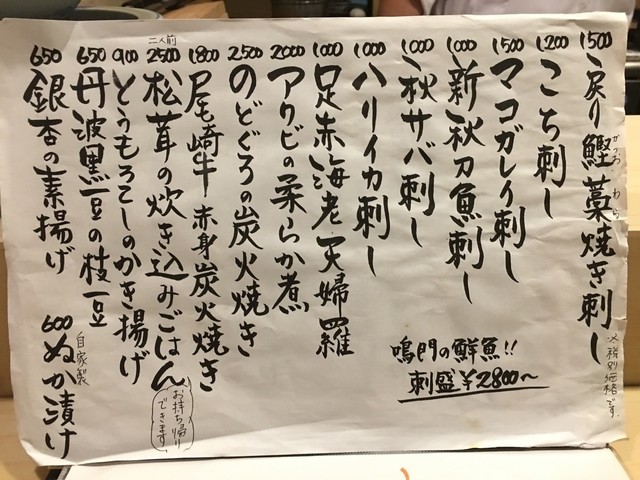 1500 戻り鰹藁焼き刺し
がつお わら
※税別価格です。
1200 こち刺し
1500 マコガレイ刺し
1000 新秋刀魚刺し
1000 秋サバ刺し
1000 ハリイカ刺し
1000 足赤海老天婦羅
2000 アワビの柔らか煮
2500 のどぐろの炭火焼き
1800 尾崎牛 赤身炭火焼き
二人前
2500 松茸の炊き込みごはん
お持ち帰り
できます
900 とうもろこしのかき揚げ
650 丹波黒豆の枝豆
650 銀杏の素揚げ
自家製
600 ぬか漬け
鳴門の鮮魚!!
刺盛¥2800〜